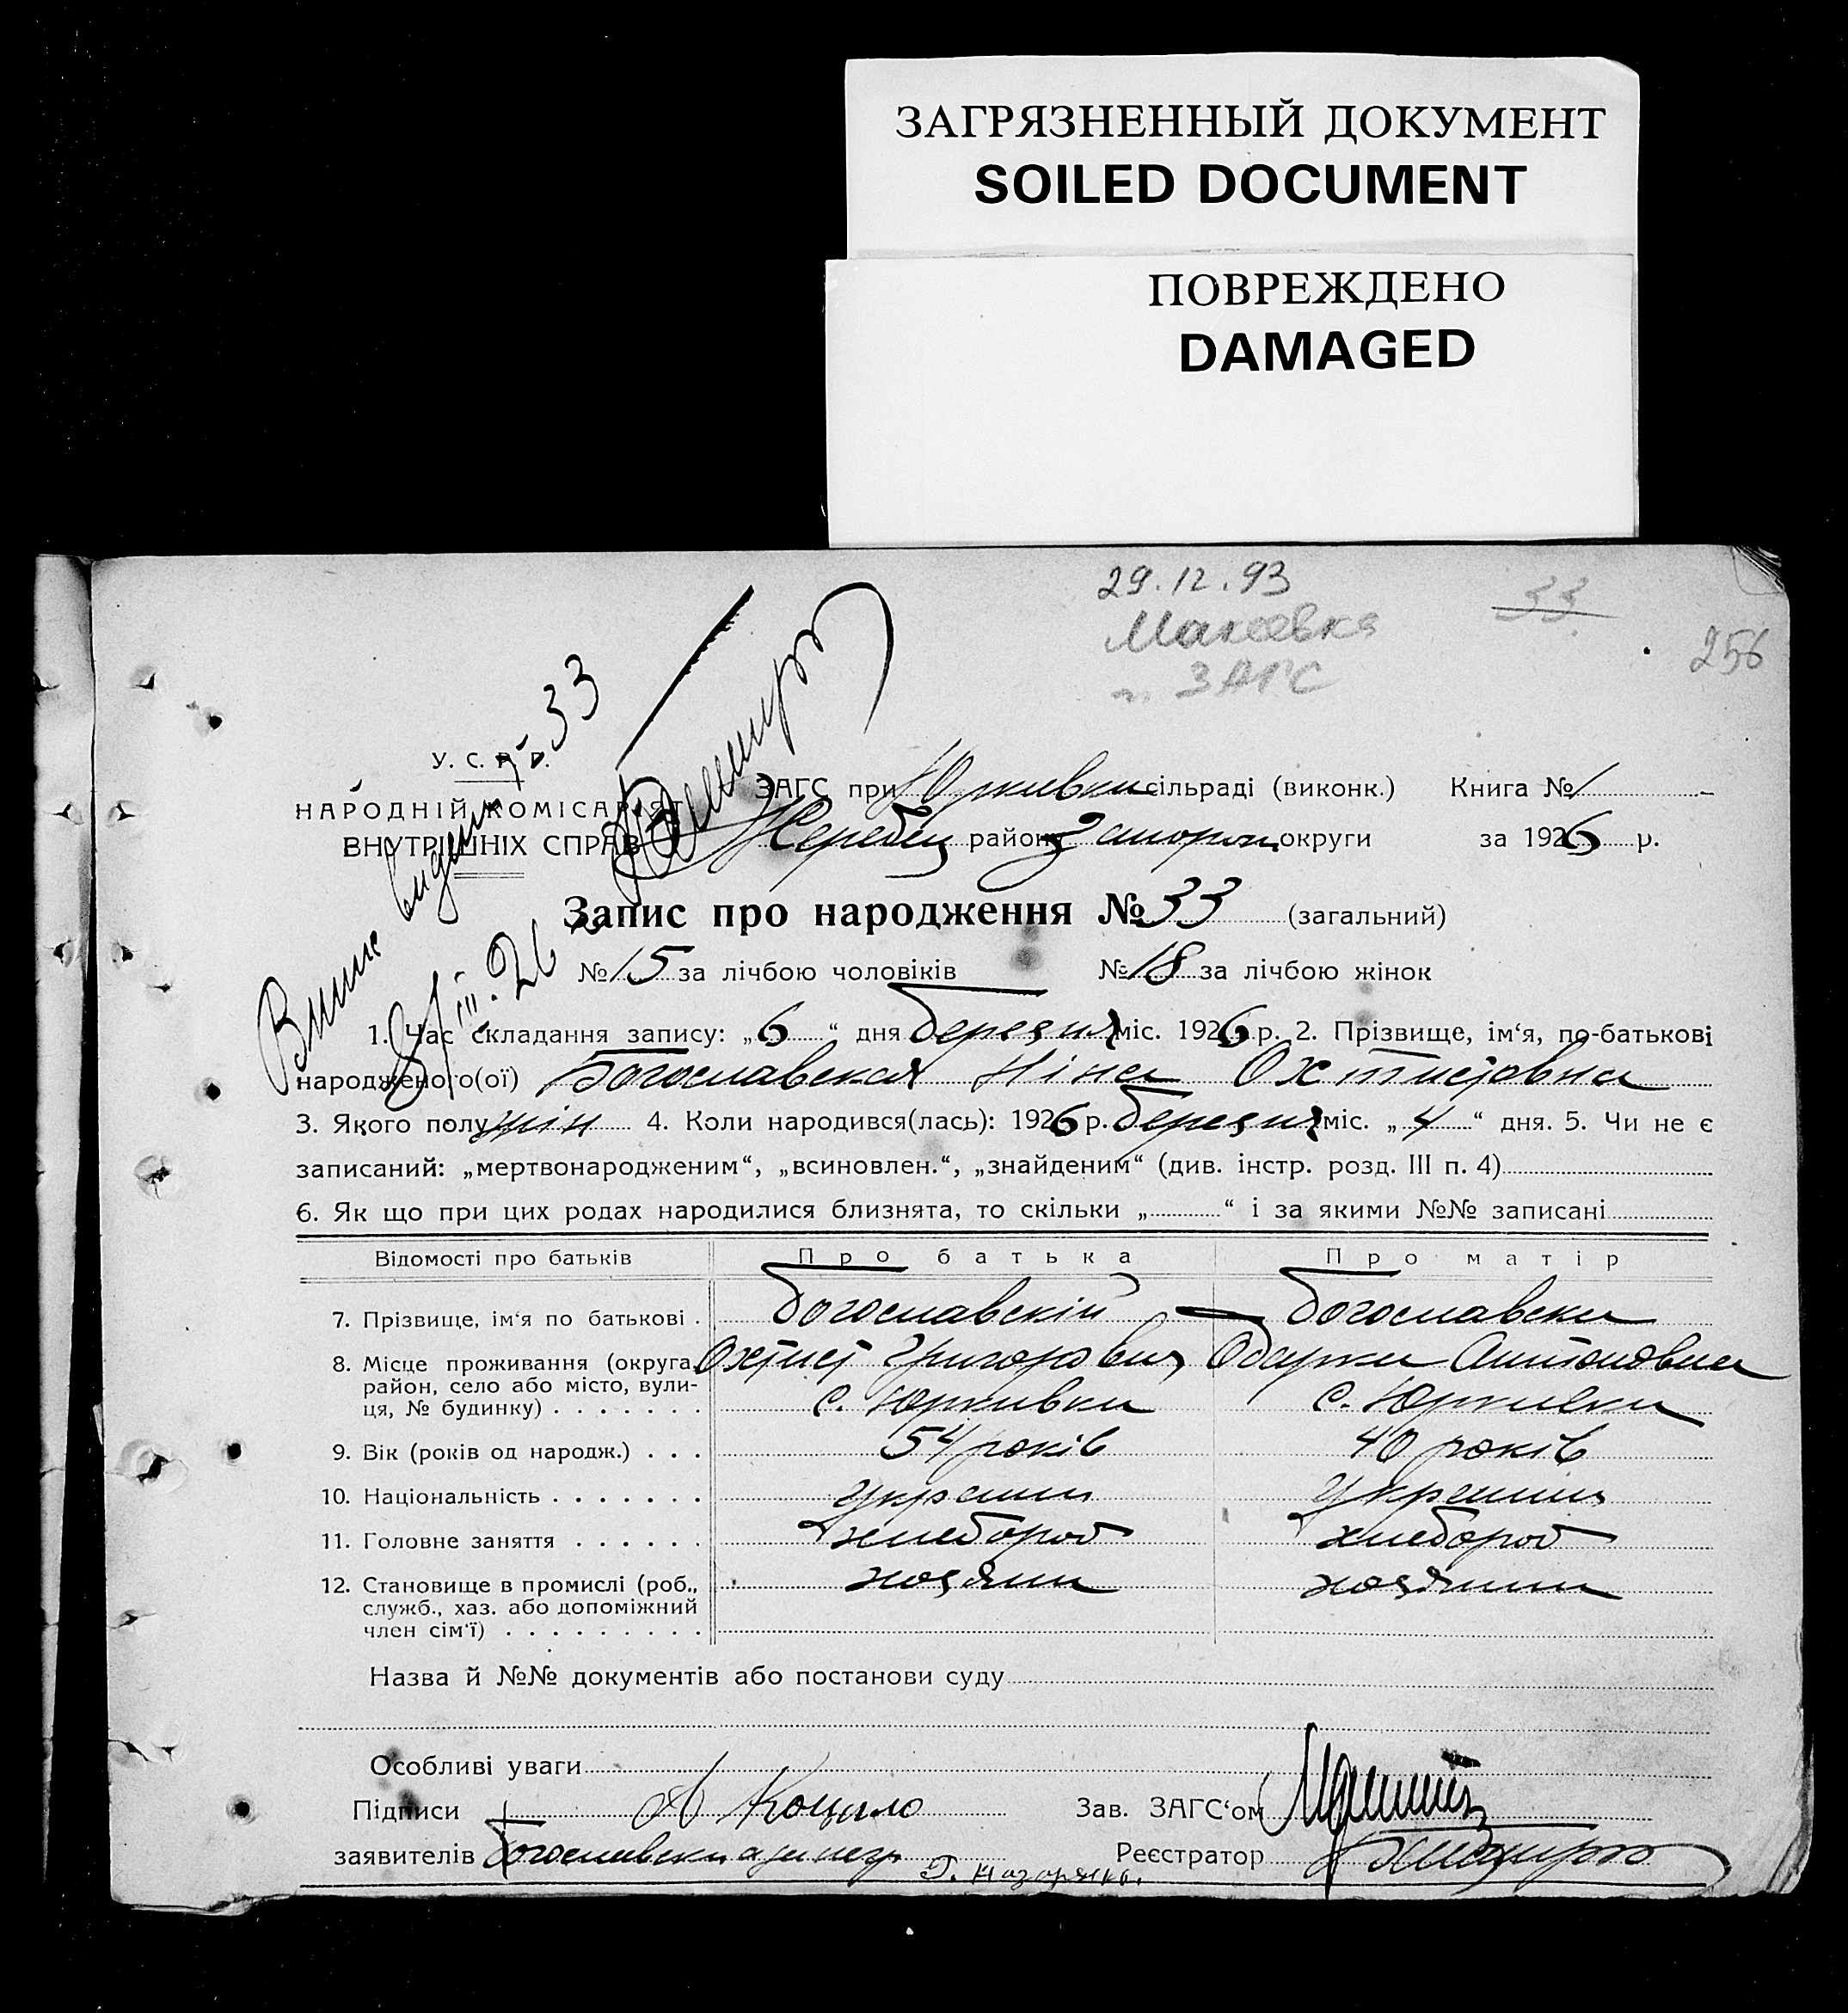 ЗАГРЯЗНЕННЫЙ ДОКУМЕНТ
SOILED DOCUMENT
ПОВРЕЖДЕНО
DAMAGED
29.12.93
Макеевка
ЗАГС
33
256
У. С. Р. Р.
НАРОДНІЙ КОМІСАРІЯТ
ВНУТРІШНІХ СПРАВ
33
ЗАГС при Юркивки сільраді (виконк.) Книга № 1
Жеребец району Запорож округи за 1926 р.
Запис про народження № 33 (загальний)
№ 15 за лічбою чоловіків № 18 за лічбою жінок
1. Час складання запису: „6“ дня березня міс. 1926 р. 2. Прізвище, ім‘я, по-батькові
народженого(ої) Богославская Ніна Охтистовна
3. Якого полу жін 4. Коли народився(лась): 1926 р. березня міс. „4“ дня. 5. Чи не є
записаний: „мертвонародженим“, „всиновлен.“, „знайденим“ (див. інстр. розд. III п. 4)
6. Як що при цих родах народилися близнята, то скільки „ “ і за якими №№ записані
Відомості про батьків Про батька Про матір
7. Прізвище, ім‘я по батькові . Богославскій Богославска
8. Місце проживання (округа, Охтист Григорович Одарка Антоновна
район, село або місто, вули-
ця, № будинку) . . . . . . . с. Юркивка с. Юркивка
9. Вік (років од народж.) . . . 54 років 40 років
10. Національність . . . . . . . украин украин
11. Головне заняття . . . . . . хлебороб хлебороб
12. Становище в промислі (роб., хозяин хозяин
служб., хаз. або допоміжний
член сім‘ї) . . . . . . . . .
Назва й №№ документів або постанови суду
Особливі уваги
Підписи Зав. ЗАГС‘ом
заявителів Богославска Реєстратор